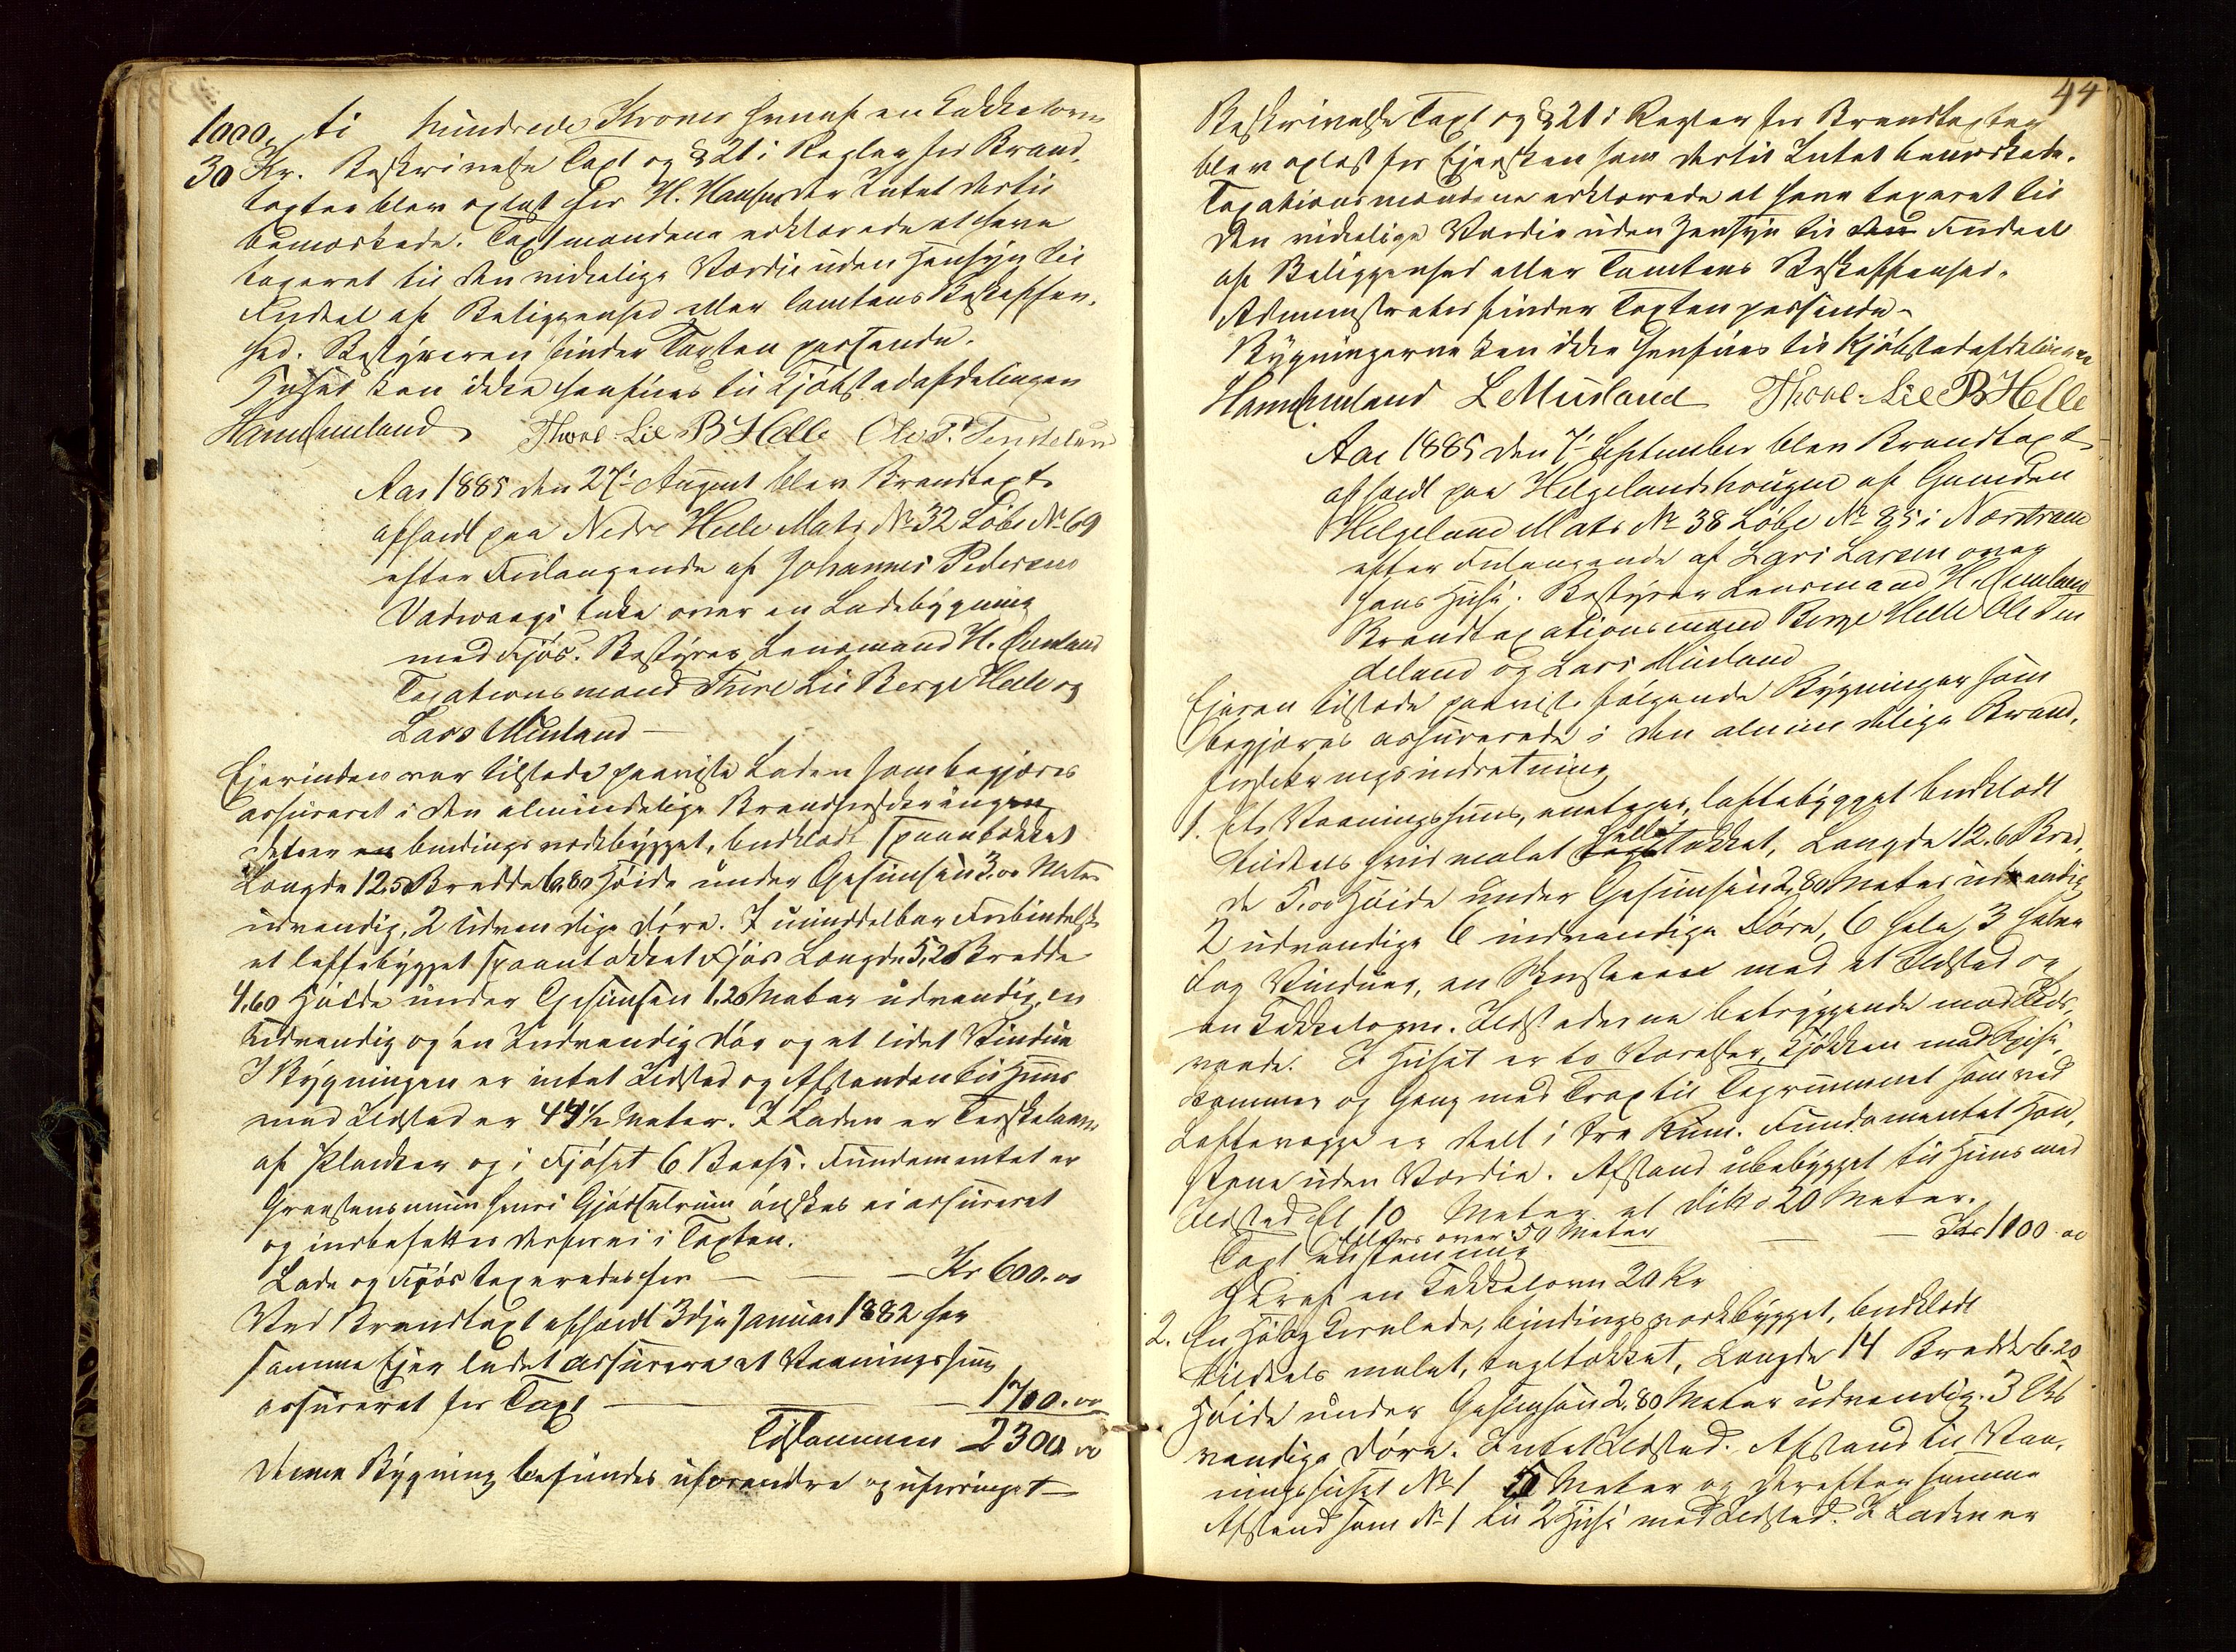 1000, ti hundrede Kroner heraf en Kakkelovn
30 Kr. Beskrivelse Taxt og § 21 i Regler for Brand,
taxter blev oplæst for H. Hansen der Intet dertil
bemærkede. Taxtmændene erklærede at have
taxeret til den virkelige Værdie uden Hensyn til
Fordeel af Beliggenhed eller Tomtens Beskaffen,
hed. Bestyreren finder Taxten passende.
Huset kan ikke henføres til Kjøbstadafdelingen
HansØmland Thore Lie B Helle Ole T. Tendeland
Aar 1885 den 27de August blev Brandtaxt
afholdt paa Nedre Helle Matr No 32 Løbe No 69
efter Forlangende af Johannes Pedersens
Vadvaags Enke over en Ladebygning
med Fjøs. Bestyrer Lensmand H. Ømland
Taxationsmænd Thore Lie Berge Helle og
Lars Musland —
Ejerinden var tilstede paaviste Laden som begjæres
assureret i den almindelige Brandforsikringen
den er bindingsværkbygget, bordklædt spaantækket
Længde 12,50 Bredde 6,80 Høide under Gesimsen 3,00 Meter
udvendig, 2 udvendige Døre. I umiddelbar Forbindelse
et loftebygget spaantækket Fjøs Længde 5,20 Bredde
4,60 Høide under Gesimsen 1,20 Meter udvendig, en
Udvendig og en Indvendig Dør og et lidet Vindue
I Bygningen er intet Ildsted og Afstanden til Huus
med Ildsted er 44 1/2 Meter. I Laden er Treskelaave
af Planker og i Fjøset 6 Baase. Fundamentet er
Graastensmuur hvori Gjødselrum ønskes ei assureret
og indbefattes derfor ei i Taxten.
Lade og Fjøs taxeredes for — — — Kr 600.00
Ved Brandtaxt afholdt 3die Januar 1882 har
samme Ejer ladet assurere et Vaaningshuus
assureret for Taxt — — — 1700.00
Tilsammen 2300.00
Denne Bygning befindes uforandre og uforringet —
44
Beskrivelse Taxt og § 21 i Regler for Brandtaxter
blev oplæst for Ejersken som dertil Intet bemærkede.
Taxationsmændene erklærede at have taxeret til
den virkelige Værdie uden Hensyn til Fordeel
af Beliggenhed eller Tomtens Beskaffenhed.
Administrator finder Taxten passende.
Bygningerne kan ikke henføres til Kjøbstadafdelingen
HansØmland L Musland Thore Lie B Helle
Aar 1885 den 7de September blev Brandtaxt
afholdt paa Helgelandshougen af Gaarden
Helgeland Matr No 38 Løbe No 85 i Nærstrand
efter Forlangende af Lars Larsen over
hans Huse. Bestyrer Lensmand H. Ømland
Brandtaxationsmænd Berge Helle Ole Ten
deland og Lars Musland
Ejeren tilstede paaviste følgende Bygninger som
begjæres assurerede i den almindelige Brand,
forsikringsindretning
1. Et Vaaningshuus, enetages, loftebygget bordklædt
tildeels hvidmalet helletækket, Længde 12.60 Bred,
de 5.00 Høide under Gesimsen 2,80 Meter udvendig
2 udvendige 6 indvendige Døre, 6 hele, 3 halve
Fag Vinduer, en Skorsteen med et Ildsted og
en Kakkelovn. Ildstederne betryggende mod Ilds,
vaade. I Huset er to Værelser, Kjøkken med Spise,
kammer og Gang med Trap til Tagrummet som ved
Loftevægge er deelt i tre Rum. Fundamentet
stene uden Værdie. Afstand ubebygget til Huus med
Ildsted Et 10 Meter et ditto 20 Meter.
ellers over 50 Meter
Taxt enstemmig — — Kr 1100.00
Heraf en Kakkelovn 20 Kr
2. En Hø og Kornlade, bindingsværkbygget, bordklædt
tildeels malet, tagltækket, Længde 14 Bredde 6.20
Høide under Gesimsen 2,80 Meter udvendig. 3 Ud
vendige Døre. Intet Ildsted. Afstand til Vaa,
ningshuset No 1 Meter og derefter samme
Afstand som No 1 til 2 Huse med Ildsted. I Laden er